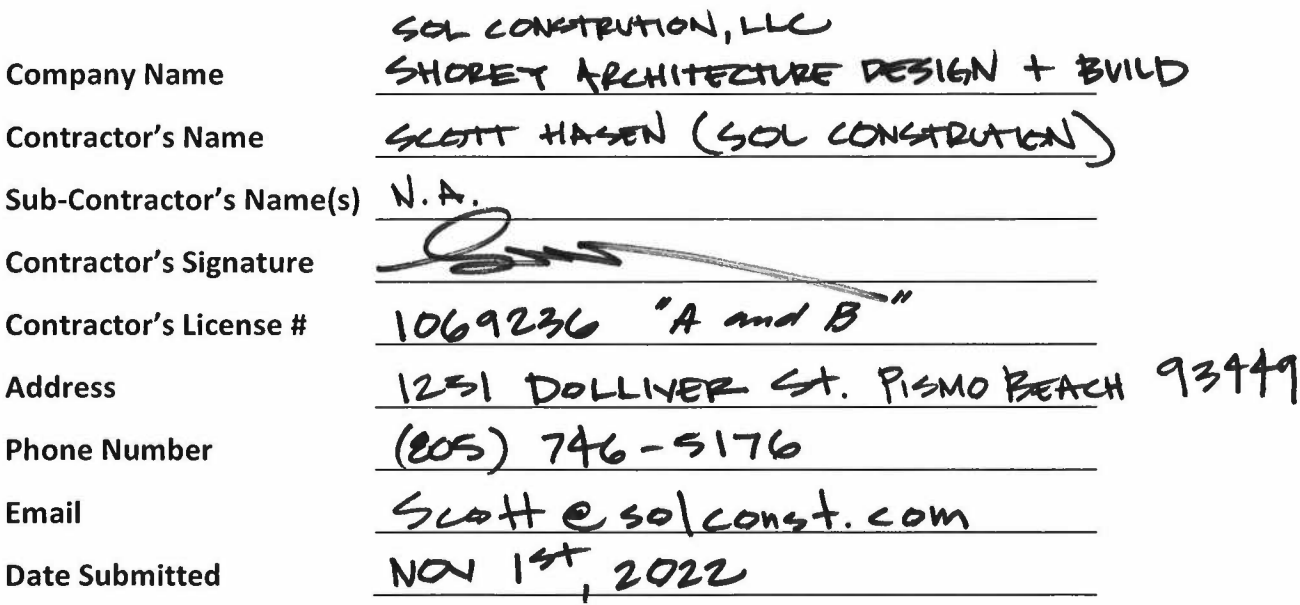 SOL CONSTRUTION, LLC
Company Name SHOREY ARCHITECTURE DESIGN + BUILD
Contractor's Name SCOTT HASEN (SOL CONSTRUTION)
Sub-Contractor's Name(s) N.A.
Contractor's Signature
Contractor's License # 1069236 "A and B"
Address 1251 DOLLIVER St. PISMO BEACH 93449
Phone Number (805) 746-5176
Email Scott@solconst.com
Date Submitted NOV 1st, 2022